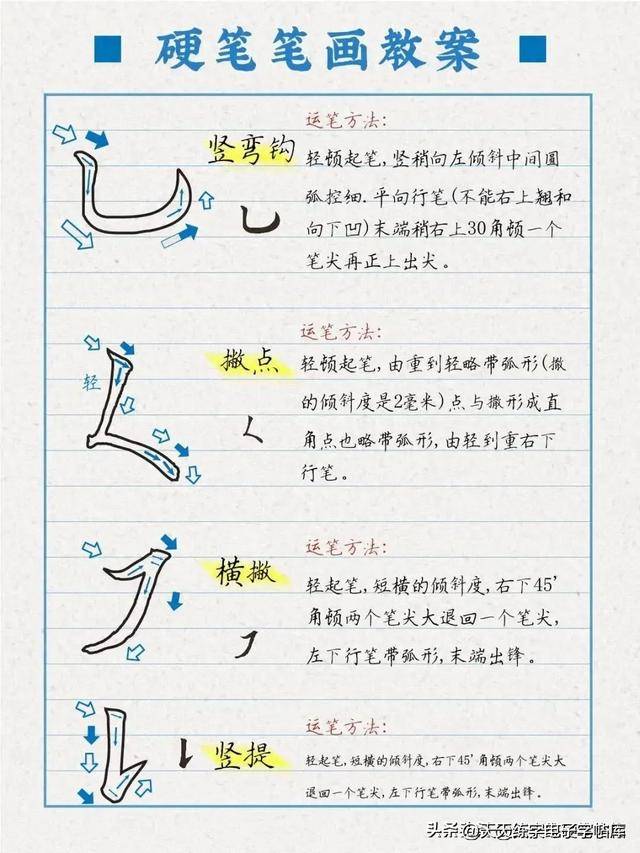 硬笔笔画教案
竖弯钩
运笔方法:
轻顿起笔,竖稍向左倾斜中间圆
弧控细.平向行笔(不能右上翘和
向下凹)末端稍右上30角顿一个
笔尖再正上出尖。
轻
撇点
运笔方法:
轻顿起笔,由重到轻略带弧形(撇
的倾斜度是2毫米)点与撇形成直
角点也略带弧形,由轻到重右下
行笔。
横撇
运笔方法:
轻起笔,短横的倾斜度,右下45'
角顿两个笔尖大退回一个笔尖,
左下行笔带弧形,末端出锋。
竖提
运笔方法:
轻起笔,短横的倾斜度,右下45'角顿两个笔尖大
退回一个笔尖,左下行笔带弧形,末端出锋。
头条@天天练字电子字帖库